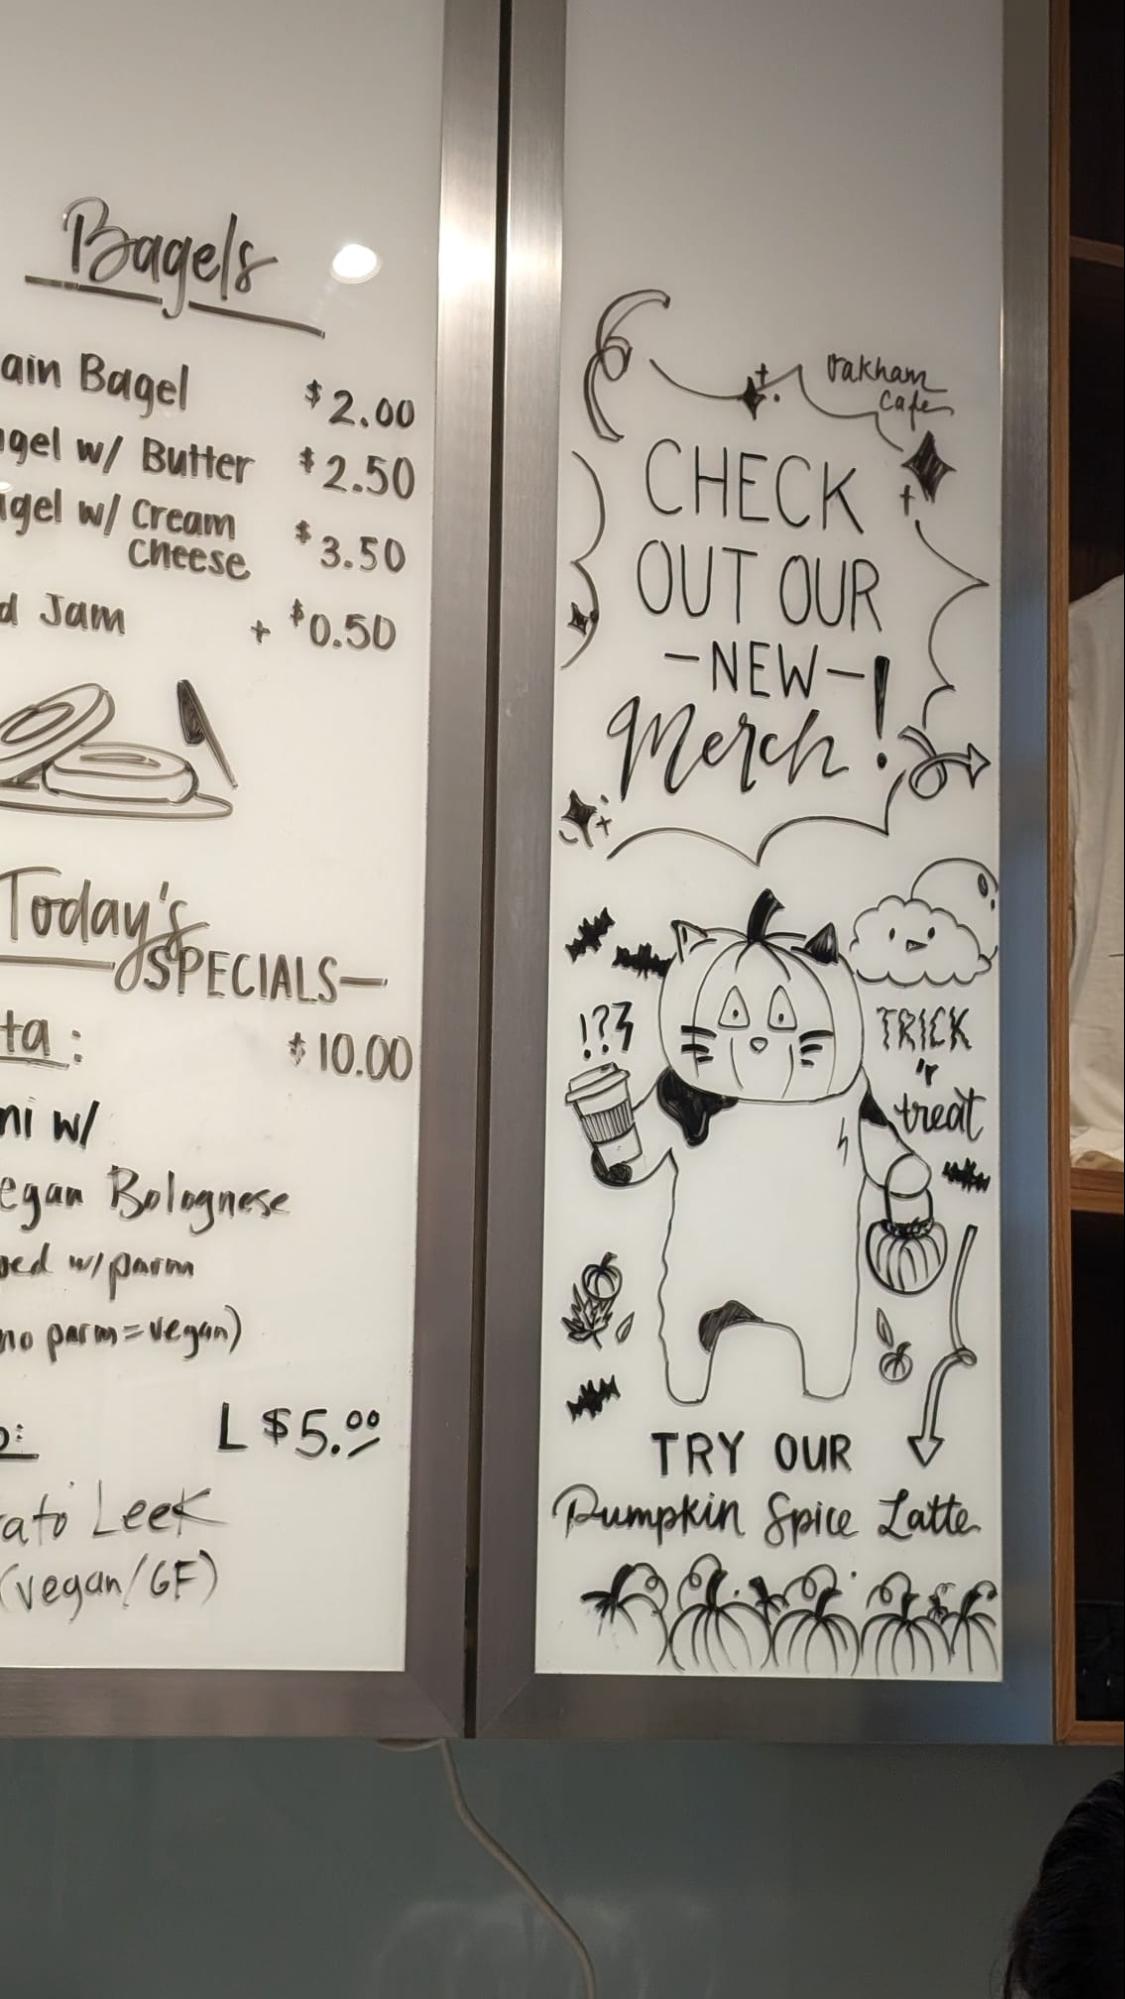 Bagels
ain Bagel $2.00
gel w/ Butter $2.50
gel w/ Cream Cheese $3.50
d Jam + $0.50
Today's
SPECIALS
ta: $10.00
ni w/
egan Bolognese
ped w/parm
no parm=vegan)
L $5.00
ato Leek
(vegan/GF)
Oakham
Cafe
CHECK
OUT OUR
-NEW-
Merch!
!??
TRICK
'r
treat
TRY OUR
Pumpkin Spice Latte